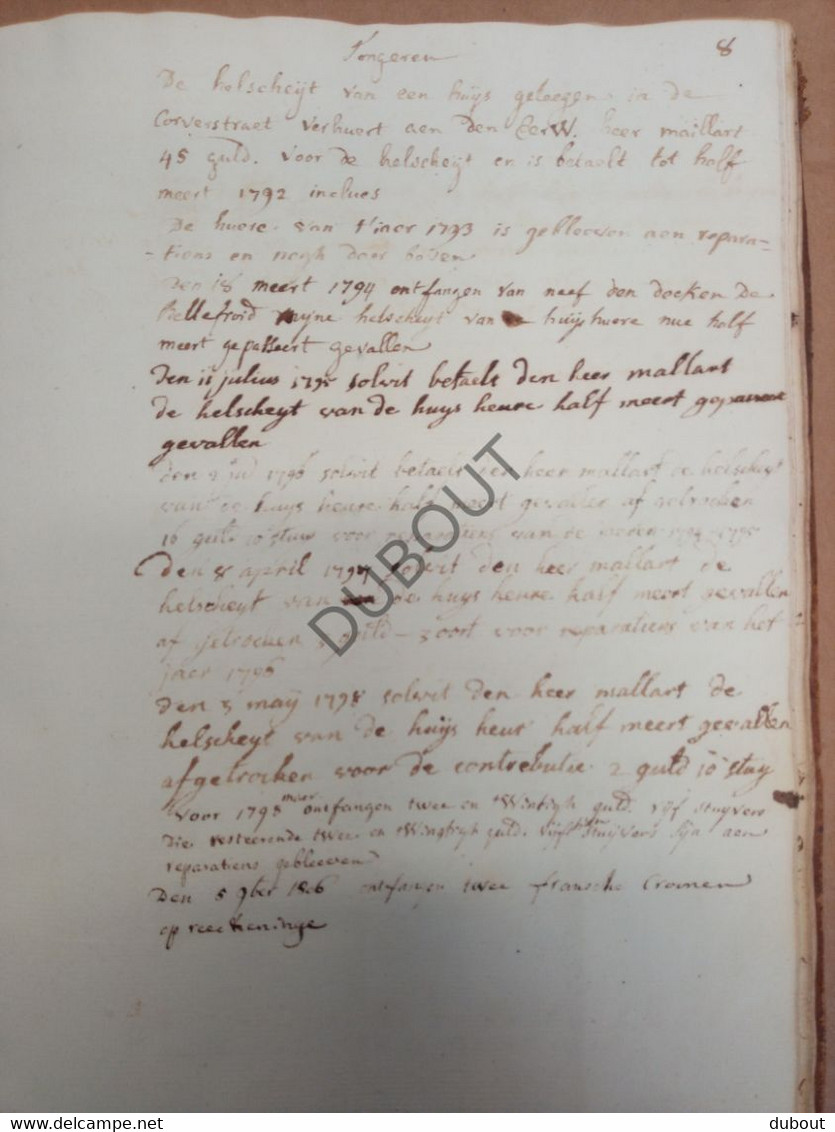 Tongeren 8
De helscheyt van een huys geleegen in de
Corverstraet verhuert aen den Eerw. heer maillart
45 guld. voor de helscheyt en is betaelt tot half
meert 1792 inclues
De huere van t'iaer 1793 is gebleeven aen repara-
-tions en noch daer boven
Den 18 meert 1794 ontfangen van neef den docken De
Bellefroid myne helscheyt van huijshuere nue half
meert gepasseert gevallen
Den 11 julius 1795 solvit betaels den heer mallart
de helscheyt van de huys heure half meert gepasseert
gevallen
den 9 1796 solvit betaels den heer mallart de helscheyt
van de huys heure half meert gevallen af getrocken
16 guld 10 stuw voor reparatiens van de 1794 1795
Den 8 april 1797 solvit den heer mallart de
helscheyt van de huys heure half meert gevallen
af getrocken guld - 3 oort voor reparatiens van het
jaer 1796
Den 3 maij 1798 solvit den heer mallart de
helscheyt van de huijs heur half meert gevallen
afgetrocken voor de contrebutie 2 guld 10 stuy
voor 1798 meer ontfangen twee en twintigh guld. vijf stuijvers
Die resteerende twee en twingtigh guld. vijfthien stuijvers sijn aen
reparatiens gebleeven
Den 5 9ber 1806 ontfangen twee fransche Croonen
op reeckeninge
DUBOUT
delcampe.net
dubout